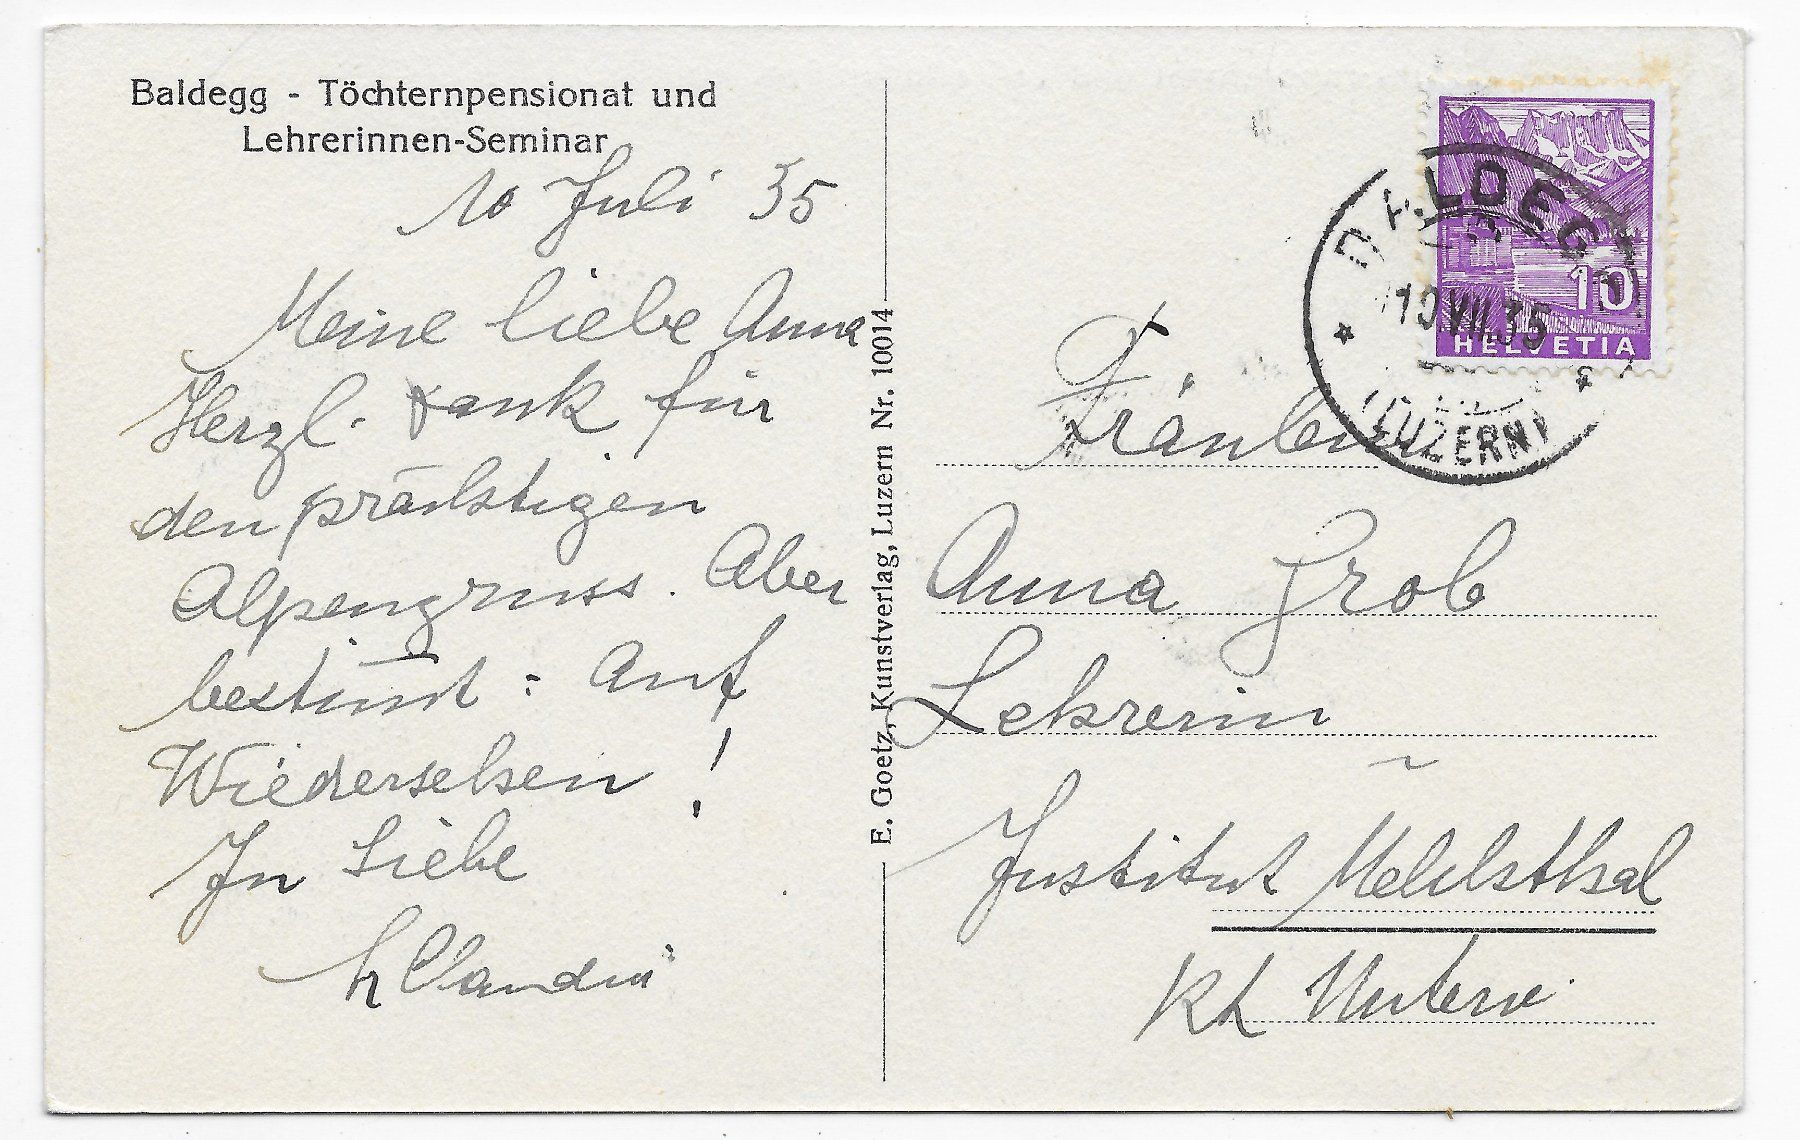 Baldegg - Töchternpensionat und
Lehrerinnen-Seminar
10 Juli 35
Meine liebe Anna
Herzl. Dank für
den prächtigen
Alpengruss. Aber
bestimt: Auf
Wiedersehen!
In Liebe
Fräulein
Anna Grob
Lehrerin
Institut Melchthal
Kt Unterw.
E. Goetz, Kunstverlag, Luzern Nr. 10014
BALDEGG
10.VII.35
(LUZERN)
10
HELVETIA